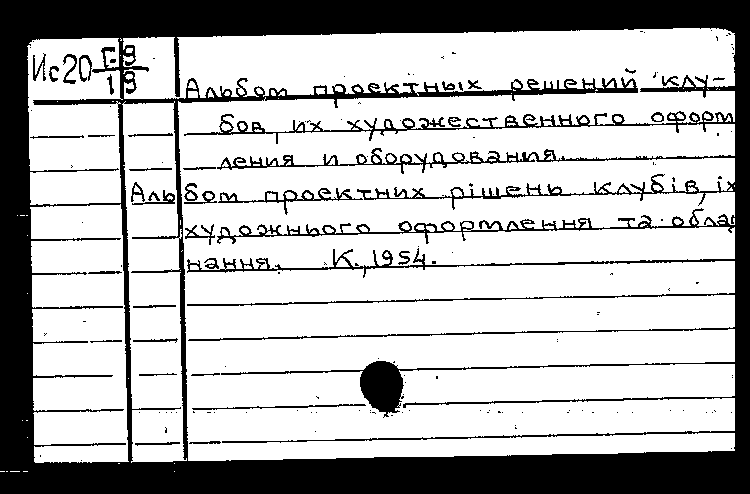 Ис20 Г-9
19
Альбом проектных решений клу-
бов, их художественного оформ
ления и оборудования.
Альбом проектних рішень клубів, їх
художнього оформлення та облад
нання. К., 1954.